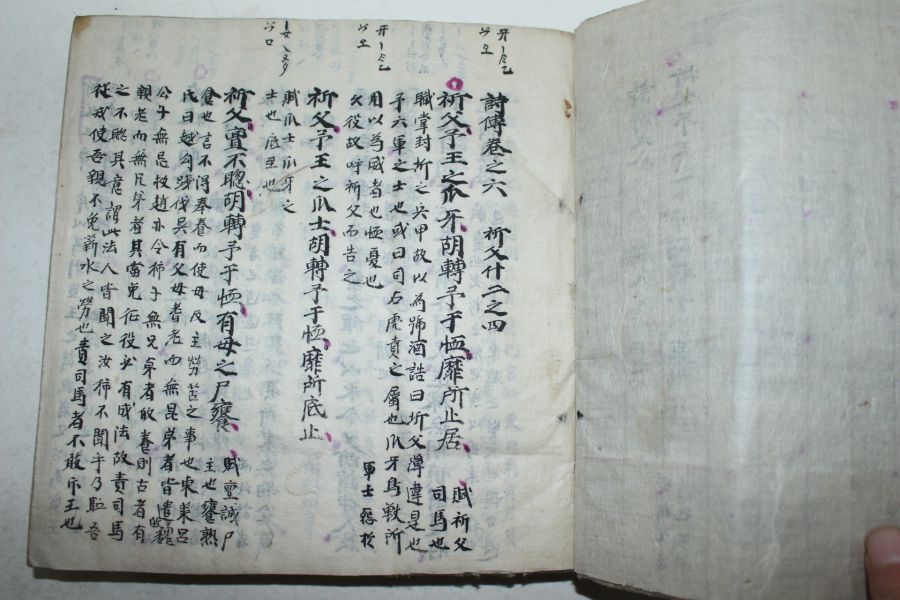 詩傳卷之六 祈父什二之四
祈父予王之爪牙胡轉予于恤靡所止居
賦祈父
司馬也
職掌封圻之兵甲故以為號酒誥曰圻父薄違是也
予六軍之士也或曰司右虎賁之屬也爪牙鳥獸所
用以為威者也恤憂也
軍士怨於
久役故呼祈父而告之
祈父予王之爪士胡轉予于恤靡所底止
賦爪士爪牙之
士也底至也
祈父亶不聰胡轉予于恤有母之尸饔
賦亶誠尸
主也饔熟
食也言不得奉養而使母反主勞苦之事也東萊呂
氏曰越句踐伐吳有父母耆老而無昆弟者皆遣歸魏
公子無忌救趙亦令獨子無兄弟者歸養則古者有
親老而無兄弟者其當免征役必有成法故責司馬
之不聰其意謂此法人皆聞之汝獨不聞乎乃驅吾
從戎使吾親不免薪水之勞也責司馬者不敢斥王也